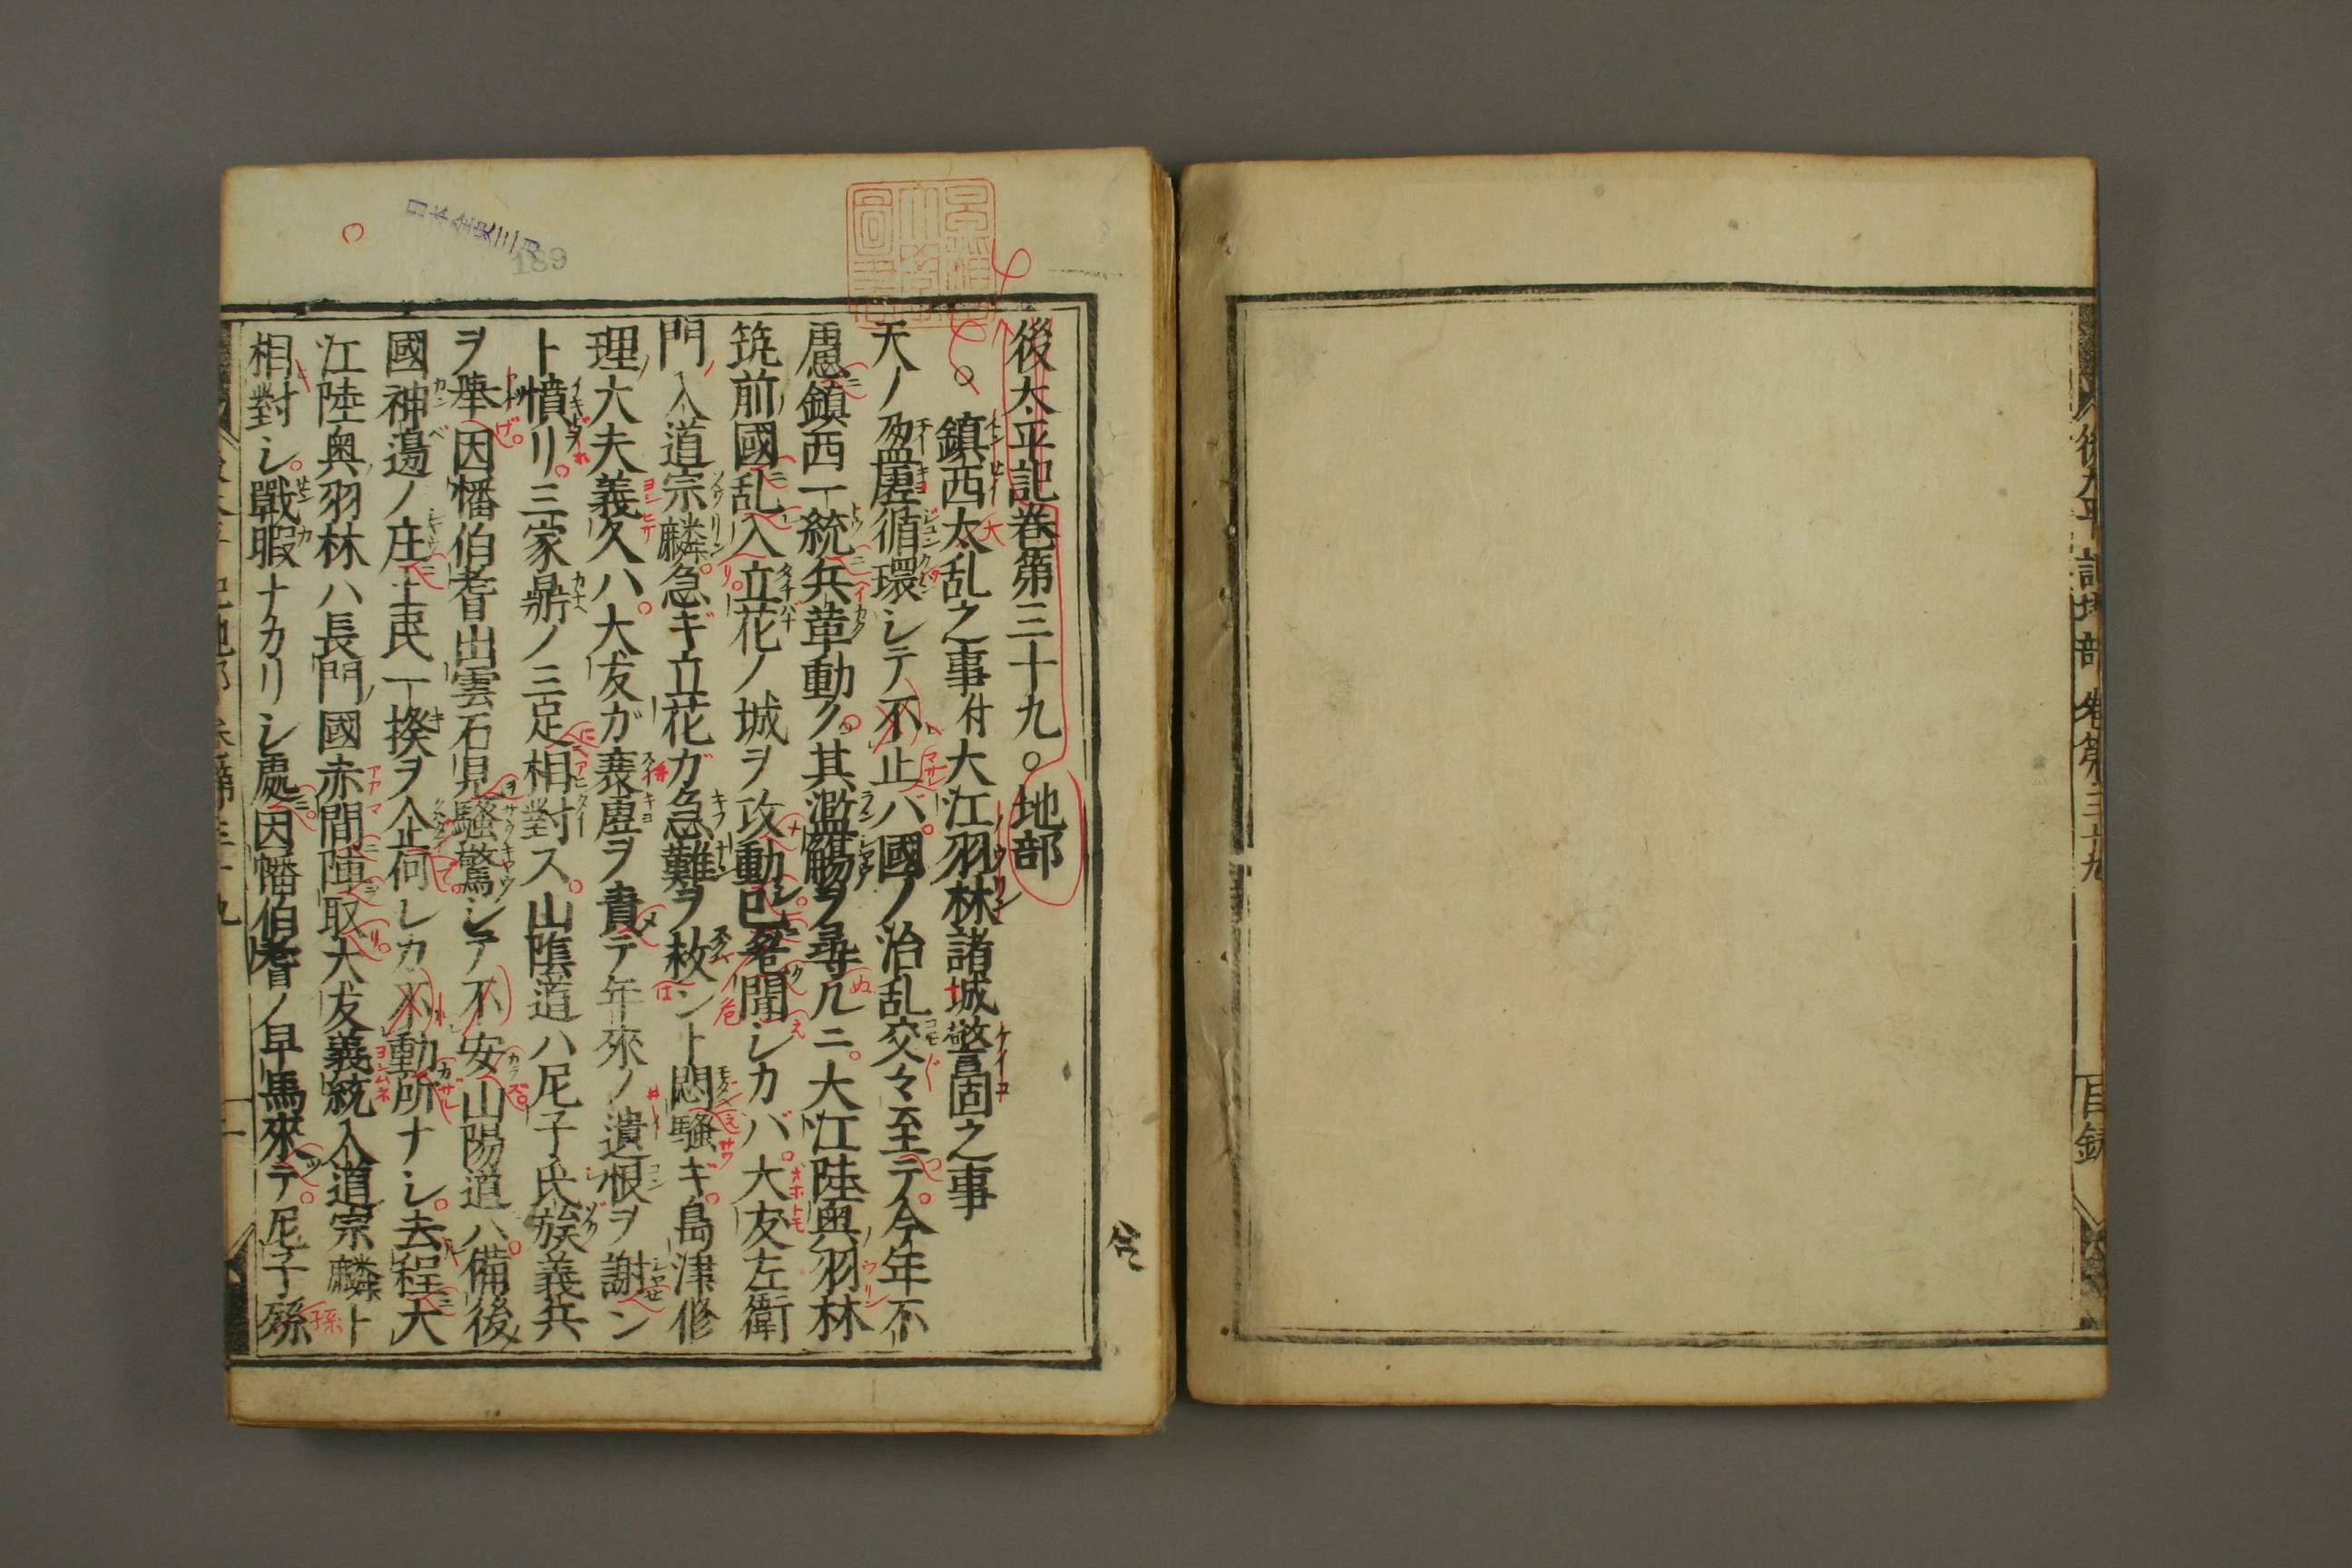 後太平記地部 卷第三十九
目録
後太平記卷第三十九。地部
鎮西太乱之事付大江羽林諸城警固之事
天ノ盈虚循環シテ不止バ國ノ治乱交々至テ今年不
慮鎮西一統兵革動ノ其濫觴ヲ尋ルニ大江陸奥羽林
筑前國乱入立花ノ城ヲ攻動已ニ聞シカバ大友左衛
門入道宗麟急ギ立花ガ急難ヲ救ント悶騒ギ島津修
理大夫義久ハ大友ガ衰虚ヲ責テ年來ノ遺恨ヲ謝ン
ト憤リ三家鼎ノ三足相對ス山陰道ハ尼子氏族義兵
ヲ擧因幡伯耆出雲石見騒驚シテ不安山陽道ハ備後
國神邊ノ庄土民一揆ヲ企何レカ不動所ナシ去程大
江陸奥羽林ハ長門國赤間陣取大友義統入道宗麟ト
相對シ戰暇ナカリシ處因幡伯耆ノ早馬來テ尼子孫
189